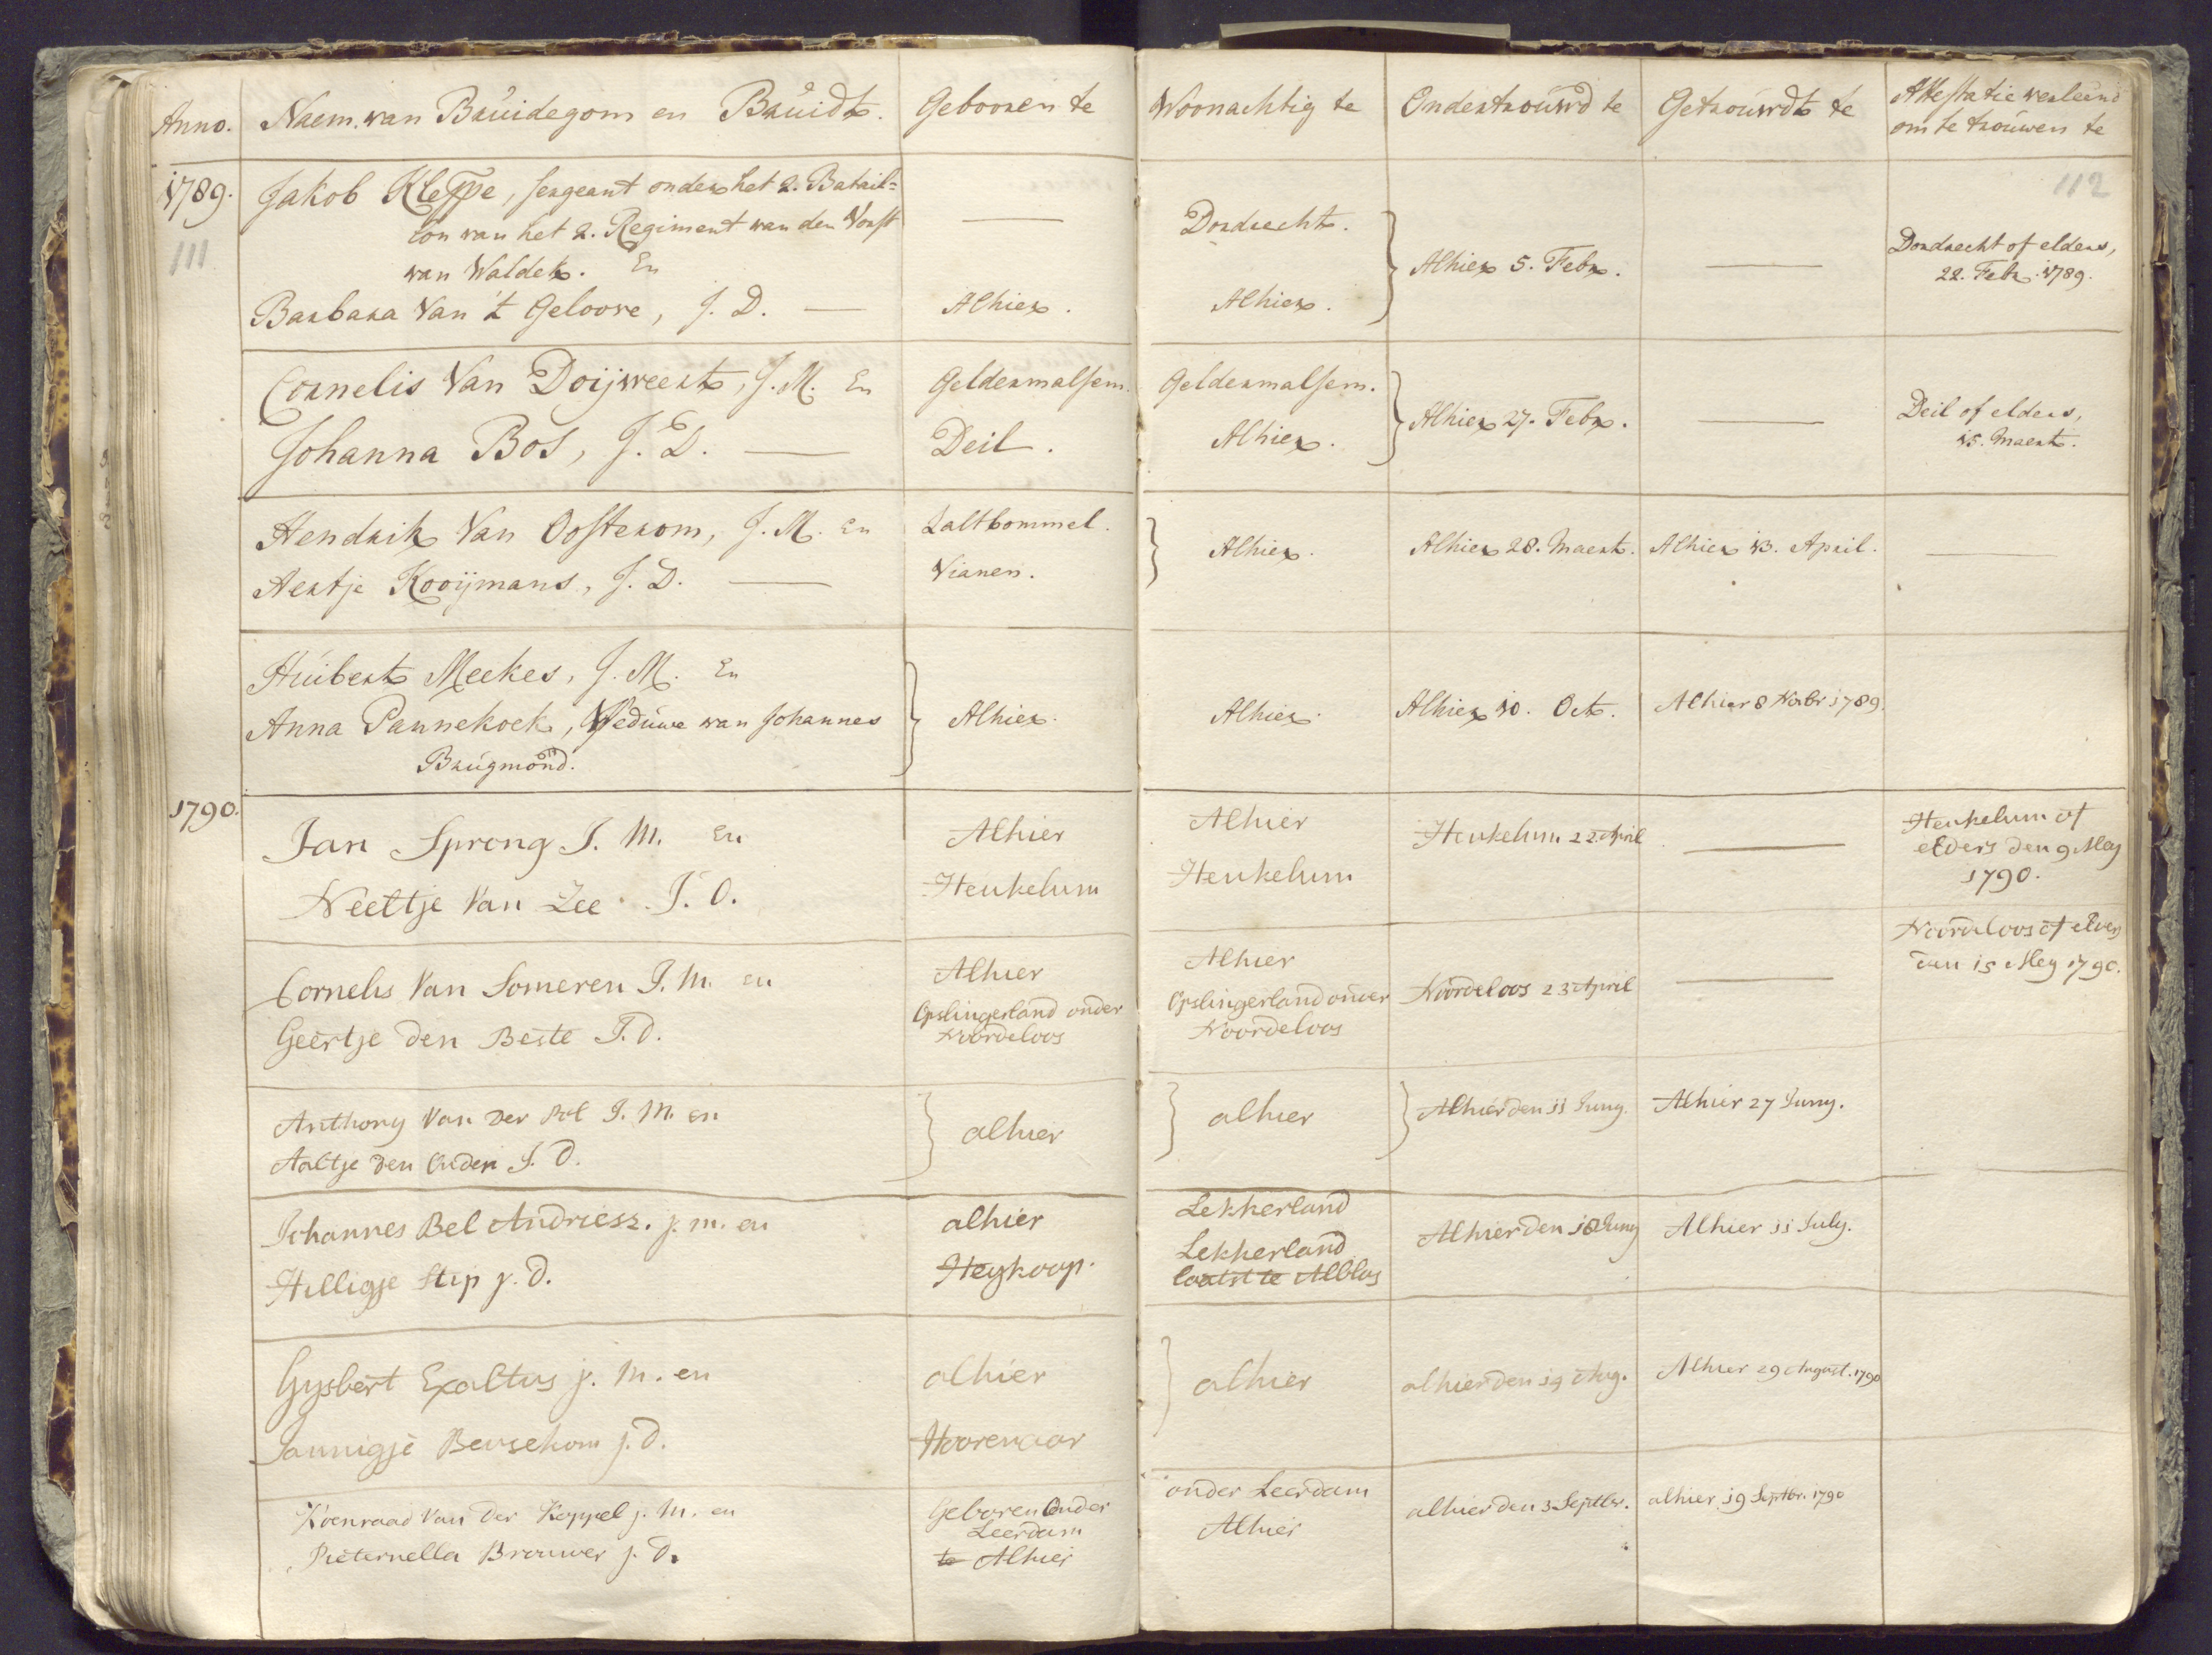 Anno. Naem. van Bruidegom en Bruidt. Gebooren te Woonachtig te Ondertrouwd te Getrouwdt te Attestatie verleend
om te trouwen te
1789. Jakob Kleppe, sergeant onder het 2. Batail=
lon van het 2. Regiment van den Vorst
van Waldek. En
Barbara Van 't Geloove, J. D. — Alhier.
111
112
Dordrecht.
Alhier.
Alhier 5. Febr.
Dordrecht of elders,
22. Febr. 1789.
Cornelis Van Doijweert, J. M. En Geldermalsem. Geldermalsem.
Johanna Bos, J. D. — Deil. Alhier.
Alhier 27. Febr.
Deil of elders,
15. Maert.
Hendrik Van Oosterom, J. M. En Zaltbommel.
Aertje Kooijmans, J. D. — Vianen.
Alhier. Alhier 28. Maert. Alhier 13. April.
Huibert Meekes, J. M. En
Anna Pannekoek, Weduwe van Johannes
Brugmond.
Alhier. Alhier. Alhier 10. Oct. Alhier 8 Novbr 1789.
1790.
Jan Sprong J. M. En Alhier Alhier Heukelum 22 April
Neeltje Van Zee J. D. Heukelum Heukelum
Heukelum of
elders den 9 Mey
1790.
Cornelis Van Someren J. M. en Alhier Alhier
Geertje den Beste J. D.
Opslingerland onder
Noordeloos
Opslingerland onder
Noordeloos
Noordeloos 23 April
Noordeloos of elders
den 15 Mey 1790.
Anthony Van Der Pol J. M. en
Aaltje den Ouden J. D.
alhier alhier Alhier den 11 Juny. Alhier 27 Juny.
Johannes Bel Andriesz. j. m. en alhier Lekkerland
Hilligje Stip j. d. Heykoop. Lekkerland
laatst te Alblas
Alhier den 18 Juny Alhier 11 July.
Gysbert Exaltus j. m. en alhier
Jannigje Beusekom j. d. Hoorenaar
alhier alhier den 19 Aug. Alhier 29 August. 1790
Koenraad Van Der Koppel j. m. en Geboren Onder
Leerdam
Pieternella Brouwer j. d. te Alhier
onder Leerdam
Alhier
alhier den 3 Septbr. alhier 19 Septbr. 1790